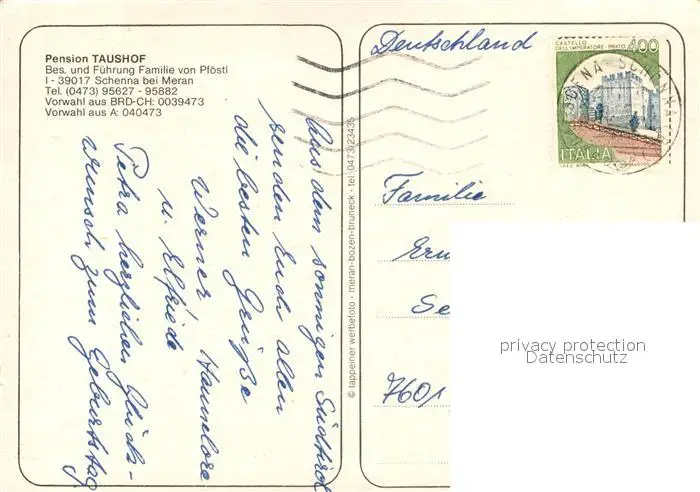 Pension TAUSHOF
Bes. und Führung Familie von Pföstl
I - 39017 Schenna bei Meran
Tel. (0473) 95627 - 95882
Vorwahl aus BRD-CH: 0039473
Vorwahl aus A: 040473
Aus dem sonnigen Südtirol
senden Euch allen
die besten Grüße
Werner Hannelore
u. Elfriede
Petra herzlichen Glück-
wunsch zum Geburtstag
© tappeiner werbefoto - meran-bozen-bruneck - tel. 0473/23435
Deutschland
CASTELLO
DELL'IMPERATORE - PRATO
400
ITALIA
SCHENNA
Familie
Se
7601
privacy protection
Datenschutz